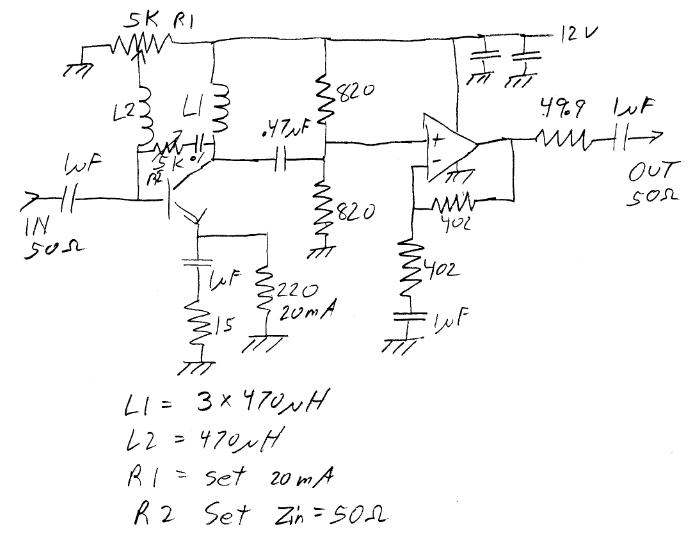 5K R1
12V
L2
L1
820
.47uF
49.9
1uF
5K
.1
R2
1uF
+
-
OUT
50Ω
IN
50Ω
820
402
402
1uF
220
20mA
15
1uF
L1 = 3 x 470uH
L2 = 470uH
R1 = set 20mA
R2 Set Zin = 50Ω